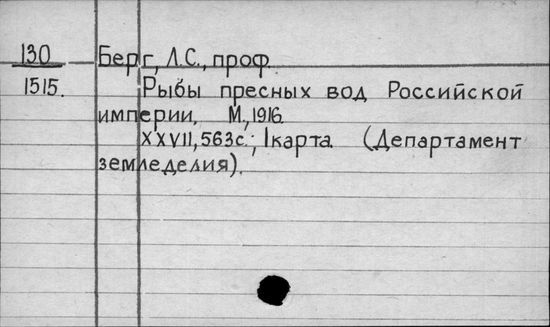 130 Берг, Л.С., проф.
1515. Рыбы пресных вод Российской
империи. М., 1916.
XXVII, 563с.; 1карта. (Департамент
земледелия).